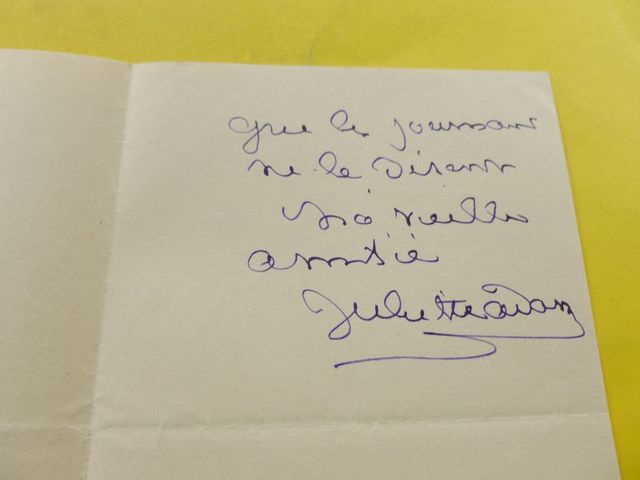 que les journaux
ne le disent
Ma vieille
amitié
Juliette Adam